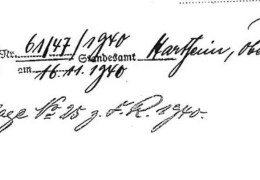 Nr. 61/47/1940 Standesamt Hartheim, Ob
am 16.11.1940
No 25 z. F. R. 1940.